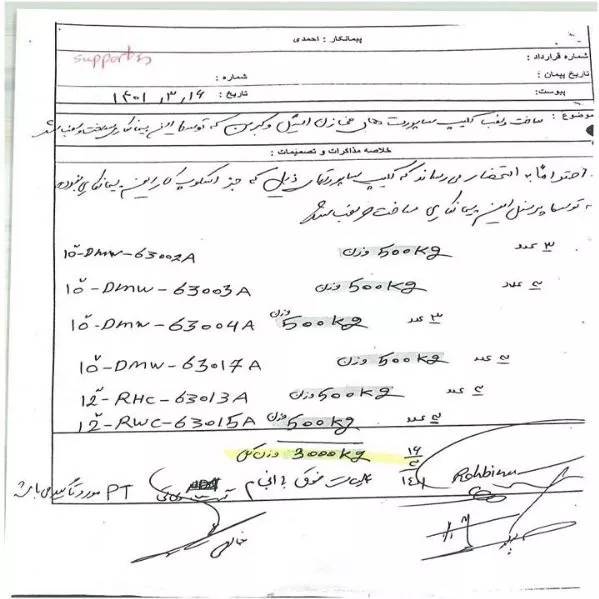 پیمانکار : احمدی
supports
شماره قرارداد :
تاریخ پیمان :
شماره :
پیوست :
تاریخ : ۱۴۰۱,۳,۱۶
موضوع : ساخت و نصب کلیپ ساپورت های مخازن که توسط این پیمانکاری ساخت و نصب شد
خلاصه مذاکرات و تصمیمات :
احتراماً به استحضار می رساند که کلیپ ساپورتهای ذیل که جز اسکوپ کار این پیمانکاری نبوده
به توسط پرسنل این پیمانکاری ساخت و نصب شد
10"-DMW-63002A وزن 500kg ۳ عدد
10"-DMW-63003A وزن 500kg ۲ عدد
10"-DMW-63004A وزن 500kg ۳ عدد
10"-DMW-63017A وزن 500kg ۲ عدد
12"-RHC-63013A وزن 500kg ۲ عدد
12"-RWC-63015A وزن 500kg ۲ عدد
وزن کل 3000kg
فوق با انجام PT مورد تأیید می باشد